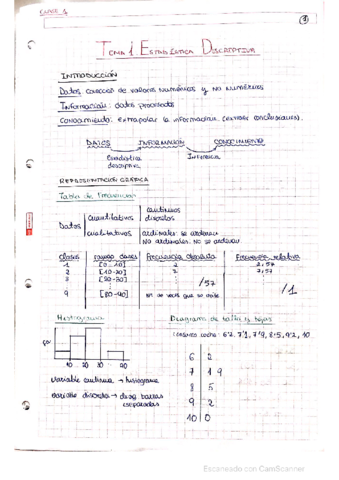 CLASE 1
1
TEMA 1 ESTADÍSTICA DESCRIPTIVA
INTRODUCCIÓN
Datos: colección de valores numéricos y no numéricos
Información: datos procesados
Conocimiento: extrapolar la información (extraer conclusiones).
DATOS INFORMACIÓN CONOCIMIENTO
Estadística descriptiva
Inferencia
REPRESENTACIÓN GRÁFICA
Tabla de frecuencias
Datos
cuantitativos
continuos
discretos
cualitativos
ordinales: se ordenan
No ordinales: no se ordenan
Clases rango clases Frecuencia absoluta Frecuencia relativa
1 [0-10]
2 [10-20] 2
3 [20-30]
9 [80-90]
/57
/1
Histograma
Diagrama de tallo y hojas
consumo coche: 6'2, 7'1, 7'9, 8'5, 9'2, 10
6 2
7 1 9
8 5
9 2
10 0
variable continua → histograma
variable discreta → diag barras
separadas
Escaneado con CamScanner